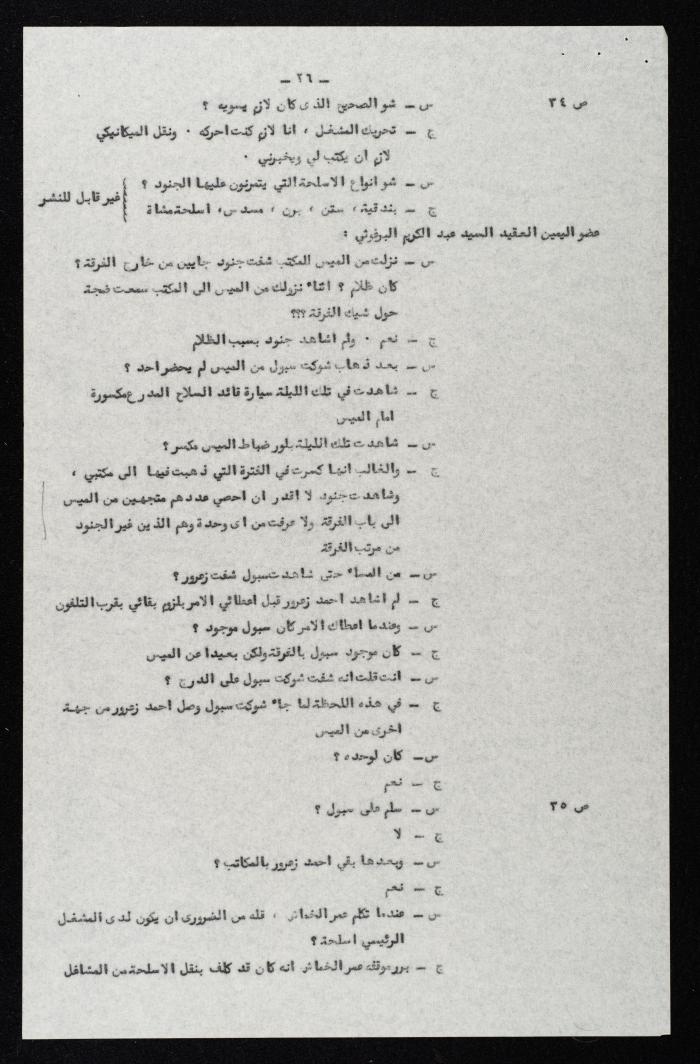 — ٢٦ —
ص ٣٤ س — شو الصحيح الذى كان لازم يسويه ؟
ج — تحريك المشغل ، انا لازم كنت احركه ٠ ونقل الميكانيكي
لازم ان يكتب لي ويخبرني ٠
س — شو انواع الاسلحة التي يتمرنون عليها الجنود ؟
غير قابل للنشر
ج — بندقية ، ستن ، برن ، مسدس ، اسلحة مشاة
عضو اليمين العقيد السيد عبد الكريم البرغوثي :
س — نزلت من الميس المكتب شفت جنود جايين من خارج الفرقة ؟
كان ظلام ؟ اثناء نزولك من الميس الى المكتب سمعت ضجة
حول شيك الفرقة ؟؟؟
ج — نعم ٠ ولم اشاهد جنود بسبب الظلام
س — بعد ذهاب شوكت سبول من الميس لم يحضر احد ؟
ج — شاهدت في تلك الليلة سيارة قائد السلاح المدرع مكسورة
امام الميس
س — شاهدت تلك الليلة بلور ضباط الميس مكسر ؟
ج — والغالب انها كسرت في الفترة التي ذهبت فيها الى مكتبي ،
وشاهدت جنود لا اقدر ان احصي عددهم متجهين من الميس
الى باب الفرقة ولا عرفت من اى وحدة وهم الذين غير الجنود
من مرتب الفرقة
س — من المساء حتى شاهدت سبول شفت زعرور ؟
ج — لم اشاهد احمد زعرور قبل اعطائي الامر بلزوم بقائي بقرب التلفون
س — وعندما اعطاك الامر كان سبول موجود ؟
ج — كان موجود سبول بالفرقة ولكن بعيدا عن الميس
س — انت قلت انه شفت شوكت سبول على الدرج ؟
ج — في هذه اللحظة لما جاء شوكت سبول وصل احمد زعرور من جهة
اخرى من الميس
س — كان لوحده ؟
ج — نعم
ص ٣٥ س — سلم على سبول ؟
ج — لا
س — وبعدها بقي احمد زعرور بالمكاتب ؟
ج — نعم
س — عندما تكلم عمر الخماش ، قله من الضرورى ان يكون لدى المشغل
الرئيسي اسلحة ؟
ج — برر موقفه عمر الخماش انه كان قد كلف بنقل الاسلحة من المشاغل